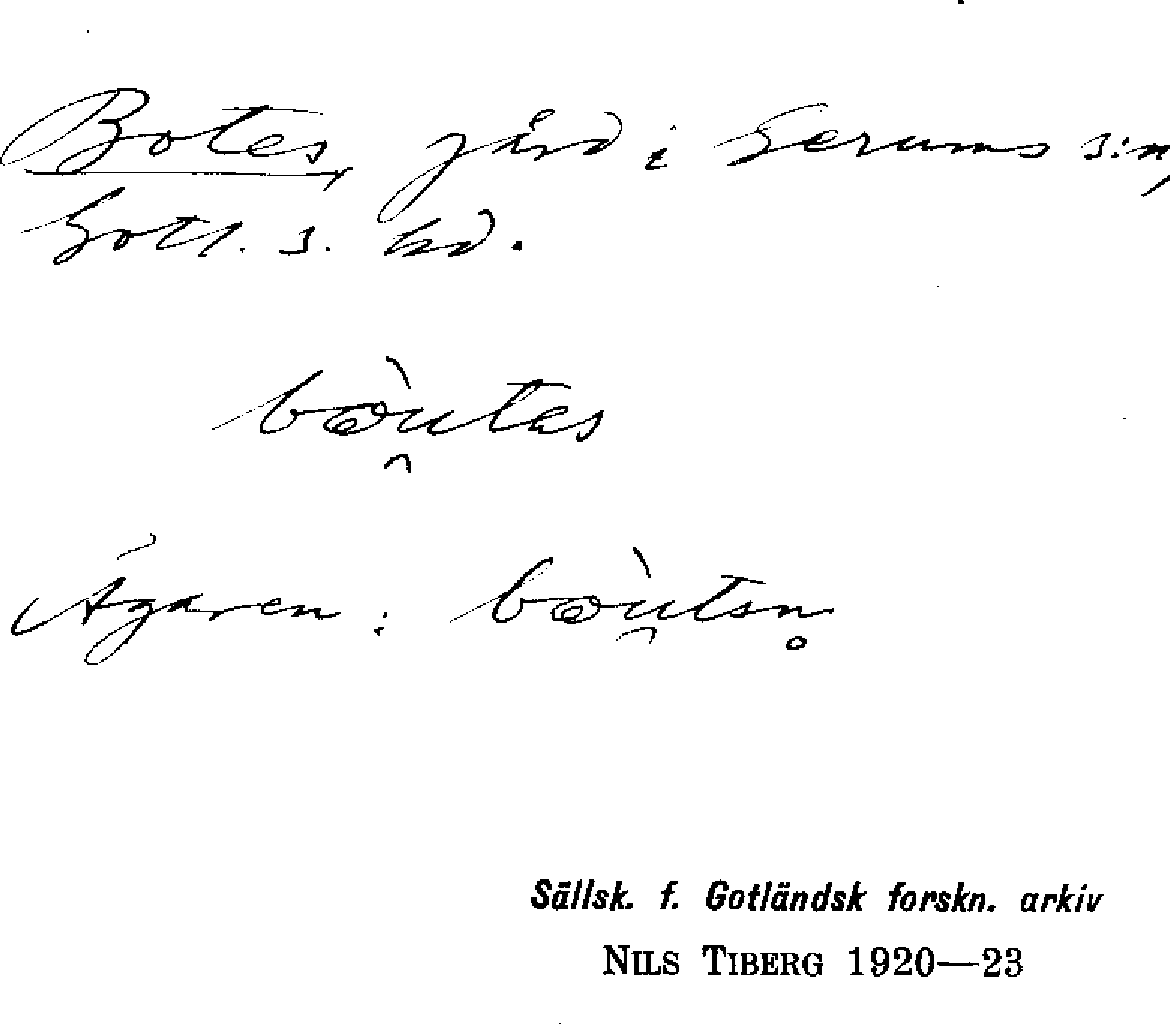 Botes, gård i Gerums s:n,
Gotl. s. hd.
bòu̯tas
Ägaren: bòu̯tsn̥
Sällsk. f. Gotländsk forskn. arkiv
NILS TIBERG 1920—23